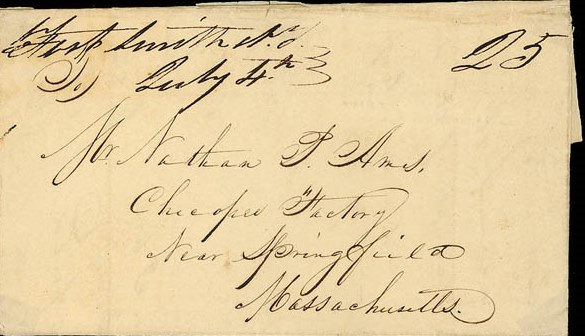 Fort Smith A.T. 25
July 4th
Mr. Nathan P. Ames.
Chicopee Factory
Near Springfield
Massachusetts.